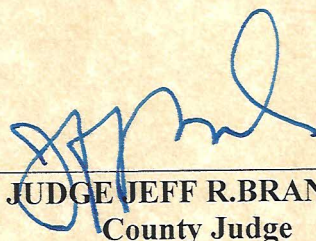 JUDGE JEFF R.BRAN
County Judge